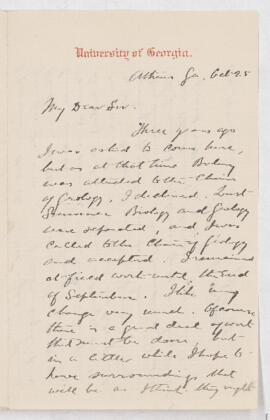 University of Georgia.
Athens Ga. Oct. 25
My Dear Sir.
Three years ago
I was asked to come here,
but as at that time Botany
was attached to the Chair
of Geology, I declined. Last
Summer Biology and Geology
were separated, and I was
called to the Chair of Geology
and accepted. I remained
at field work until the end
of September. I like my
change very much. Of course
there is a great deal of work
that must be done, but
in a little while I hope to
have surroundings that
will be as I think they ought